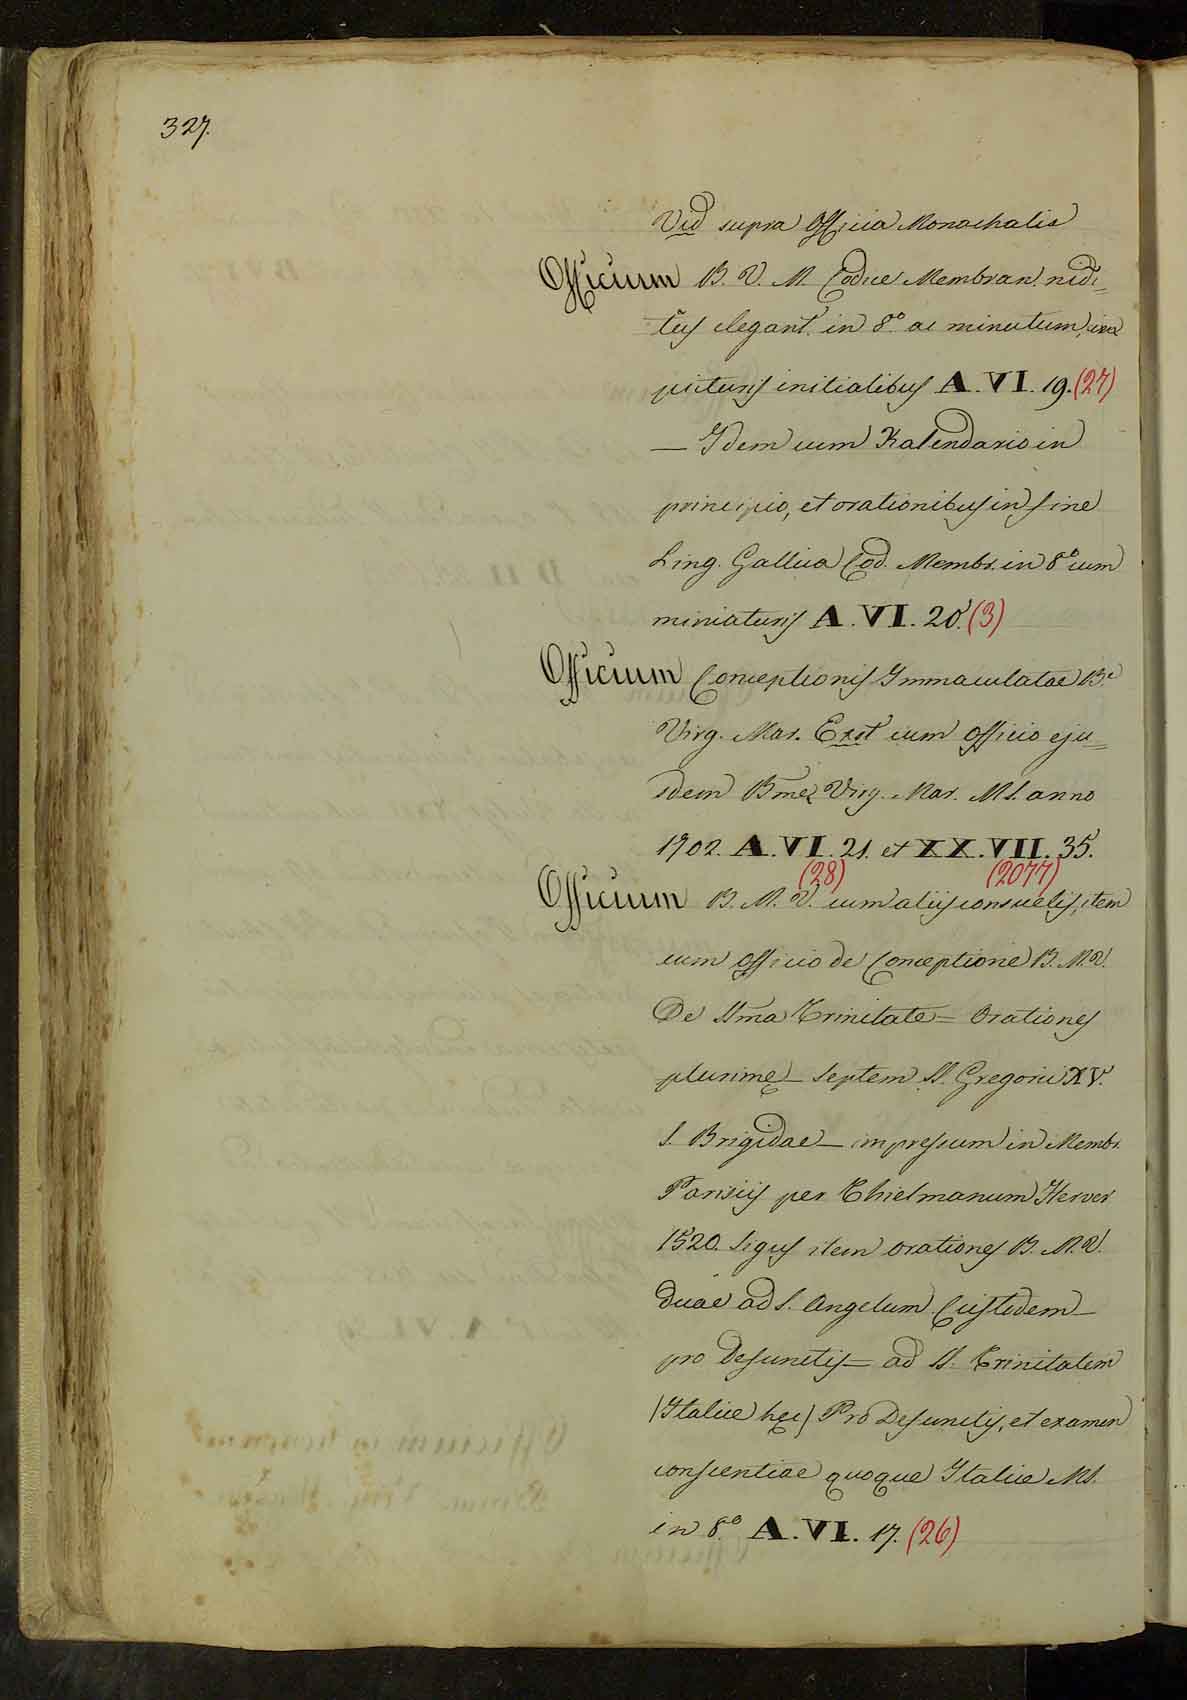 327.
Vid supra Officia Monachalia
Officium B. V. M. Codice Membran. nidi=
tus elegant. in 8.° ac minutum, cum
picturis initialibus A. VI. 19. (27)
— Idem cum Kalendario in
principio, et orationibus in fine
Ling. Gallica Cod. Membr. in 8° cum
miniaturis A. VI. 20. (3)
Officium Conceptionis Immaculatae B.e
Virg. Mar. Exst cum Officio eju=
sdem Bmę Virg. Mar. MS. anno
1702. A. VI. 21. et XX. VII. 35.
(28) (2077)
Officium B. M. V. cum aliis consuetis, item
cum Officio de Conceptione B. M. V.
De SSma Trinitate = Orationes
plurimę — septem S. Gregorii XV.
S. Brigidae — impressum in Membr.
Parisiis per Thielmanum Kerver
1520. item orationes B. M. V.
duae ad S. Angelum Custodem —
pro Defunctis — ad SS. Trinitatem
(Italice hęc) Pro Defunctis, et examen
conscientiae quoque Italice MS.
in 8.° A. VI. 17. (26)